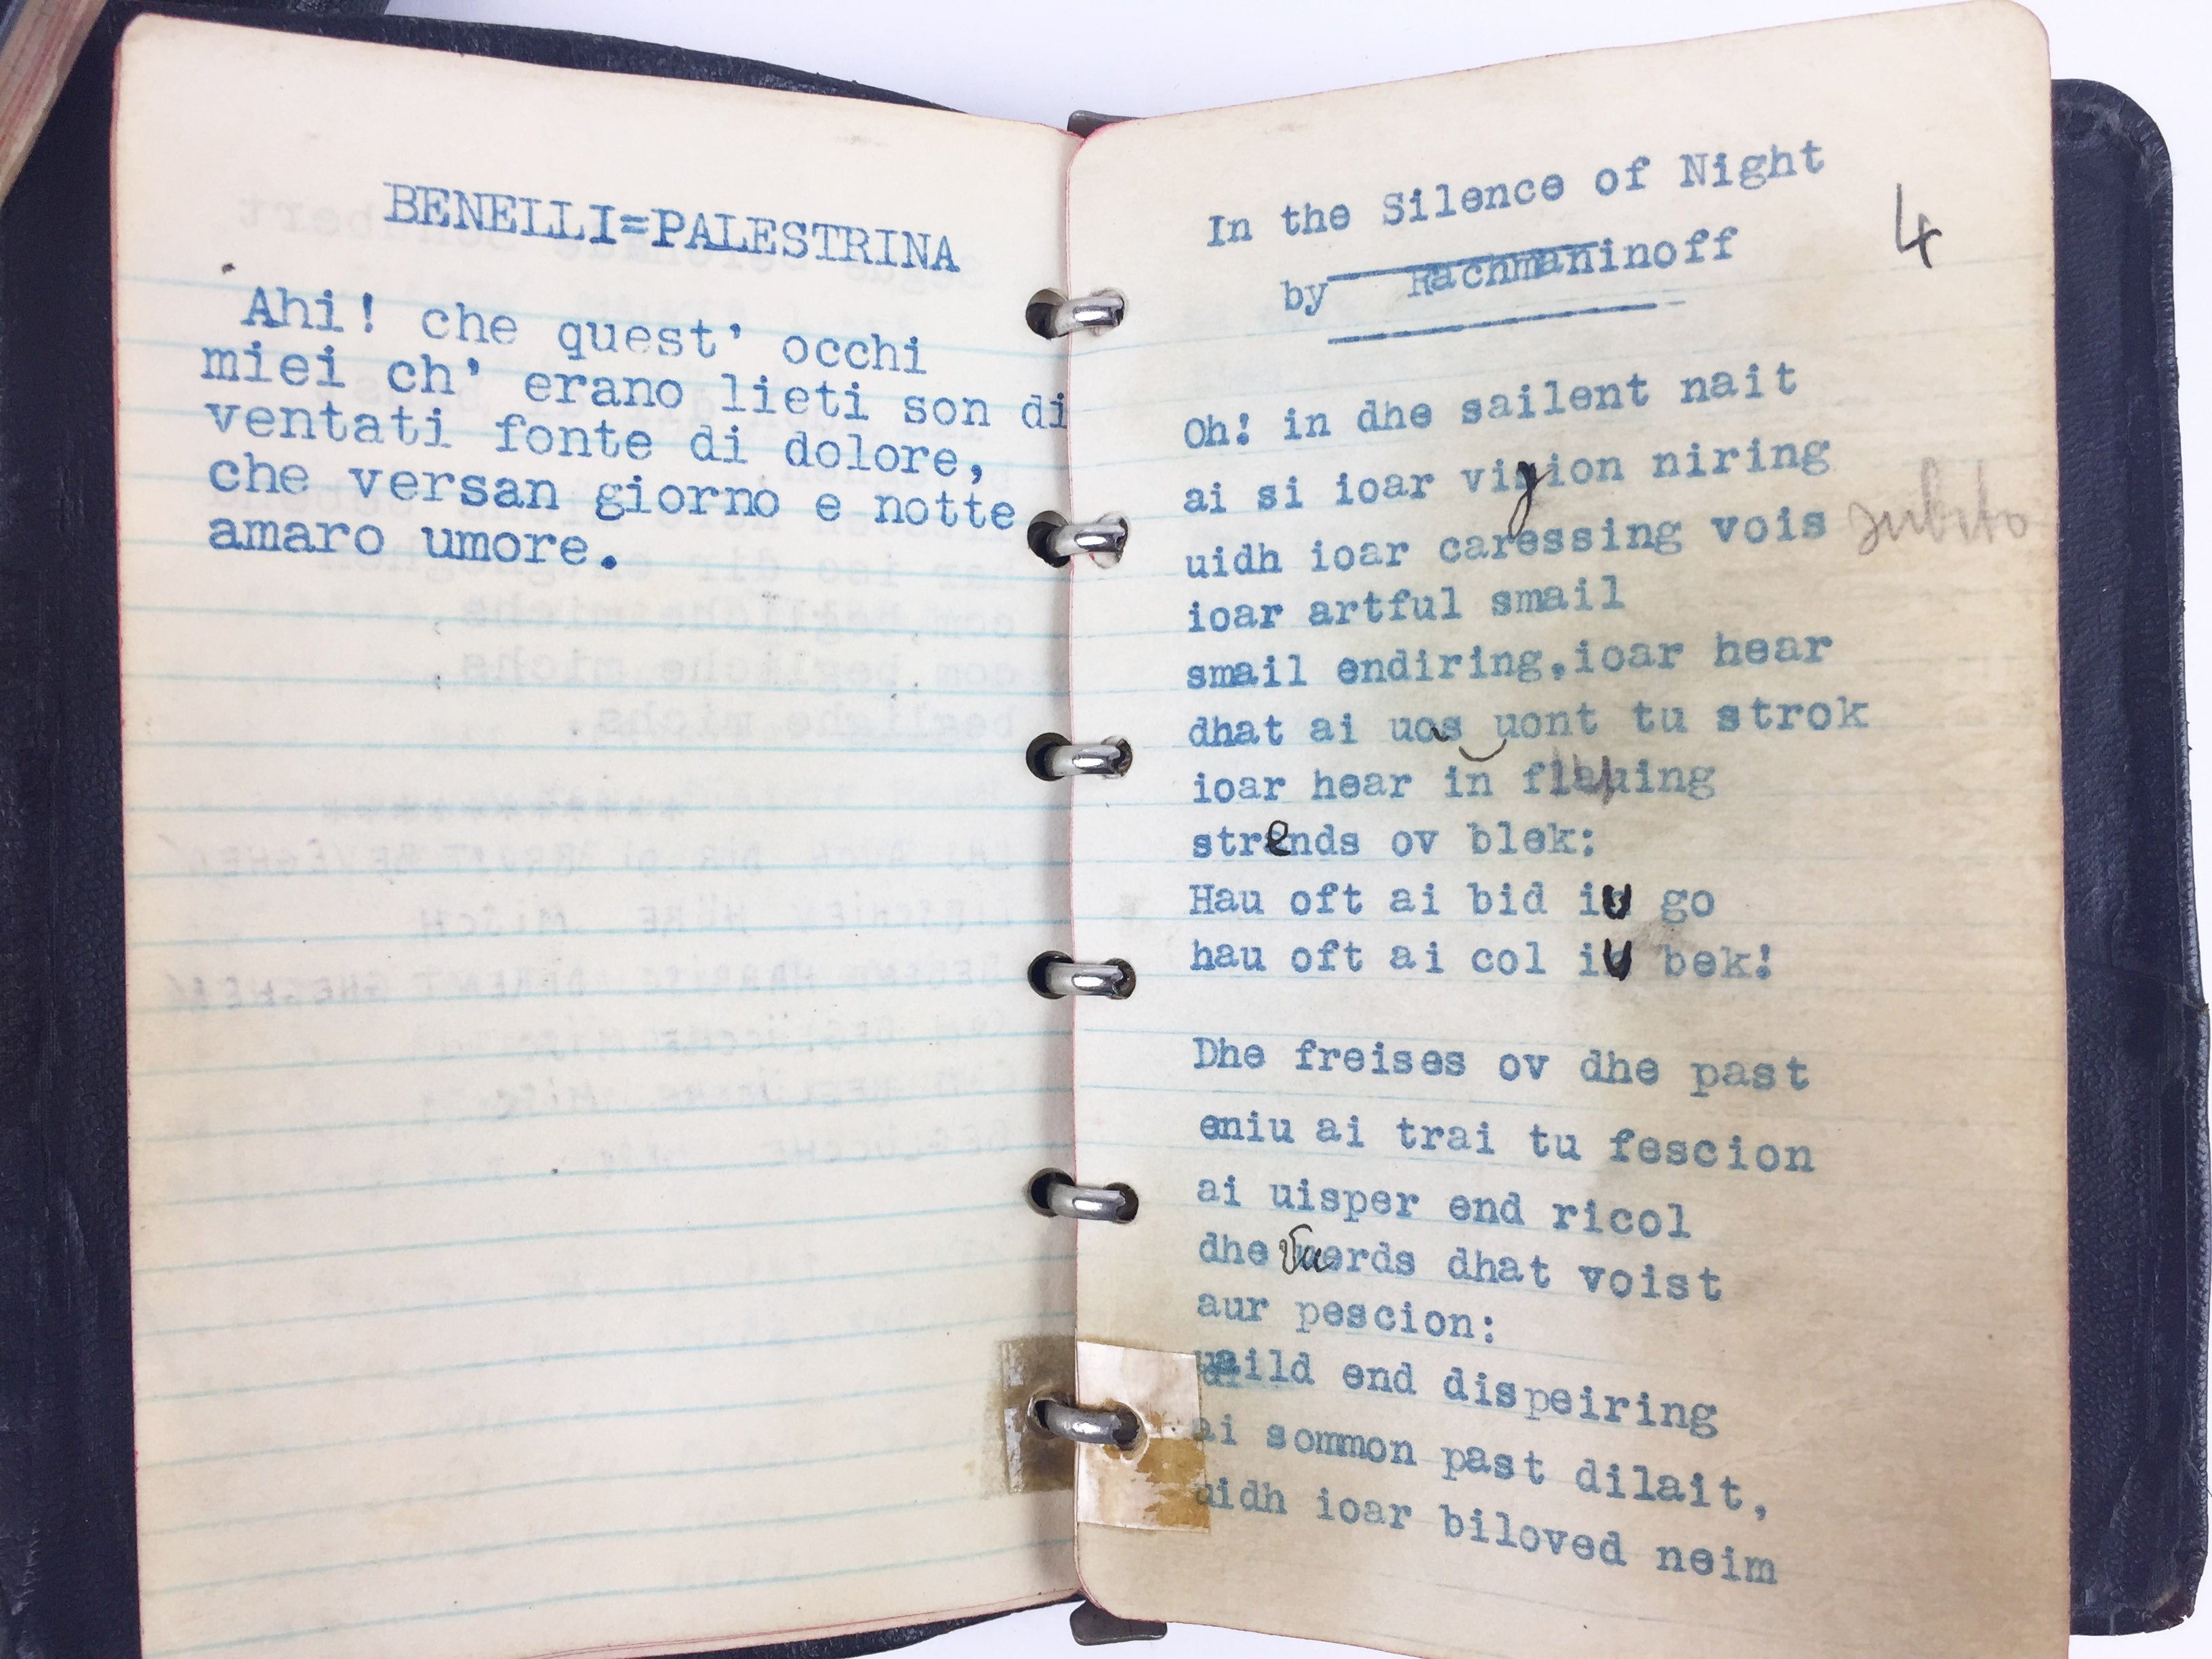 BENELLI=PALESTRINA
Ahi! che quest' occhi
miei ch' erano lieti son di
ventati fonte di dolore,
che versan giorno e notte
amaro umore.
In the Silence of Night
by Rachmaninoff
4
Oh! in dhe sailent nait
ai si ioar vigion niring
uidh ioar caressing vois subito
ioar artful smail
smail endiring, ioar hear
dhat ai uos uont tu strok
ioar hear in
strends ov blek:
Hau oft ai bid iu go
hau oft ai col iu bek!
Dhe freises ov dhe past
eniu ai trai tu fescion
ai uisper end ricol
dhe dhat voist
aur pescion:
uaild end dispeiring
ai sommon past dilait,
uidh ioar biloved neim